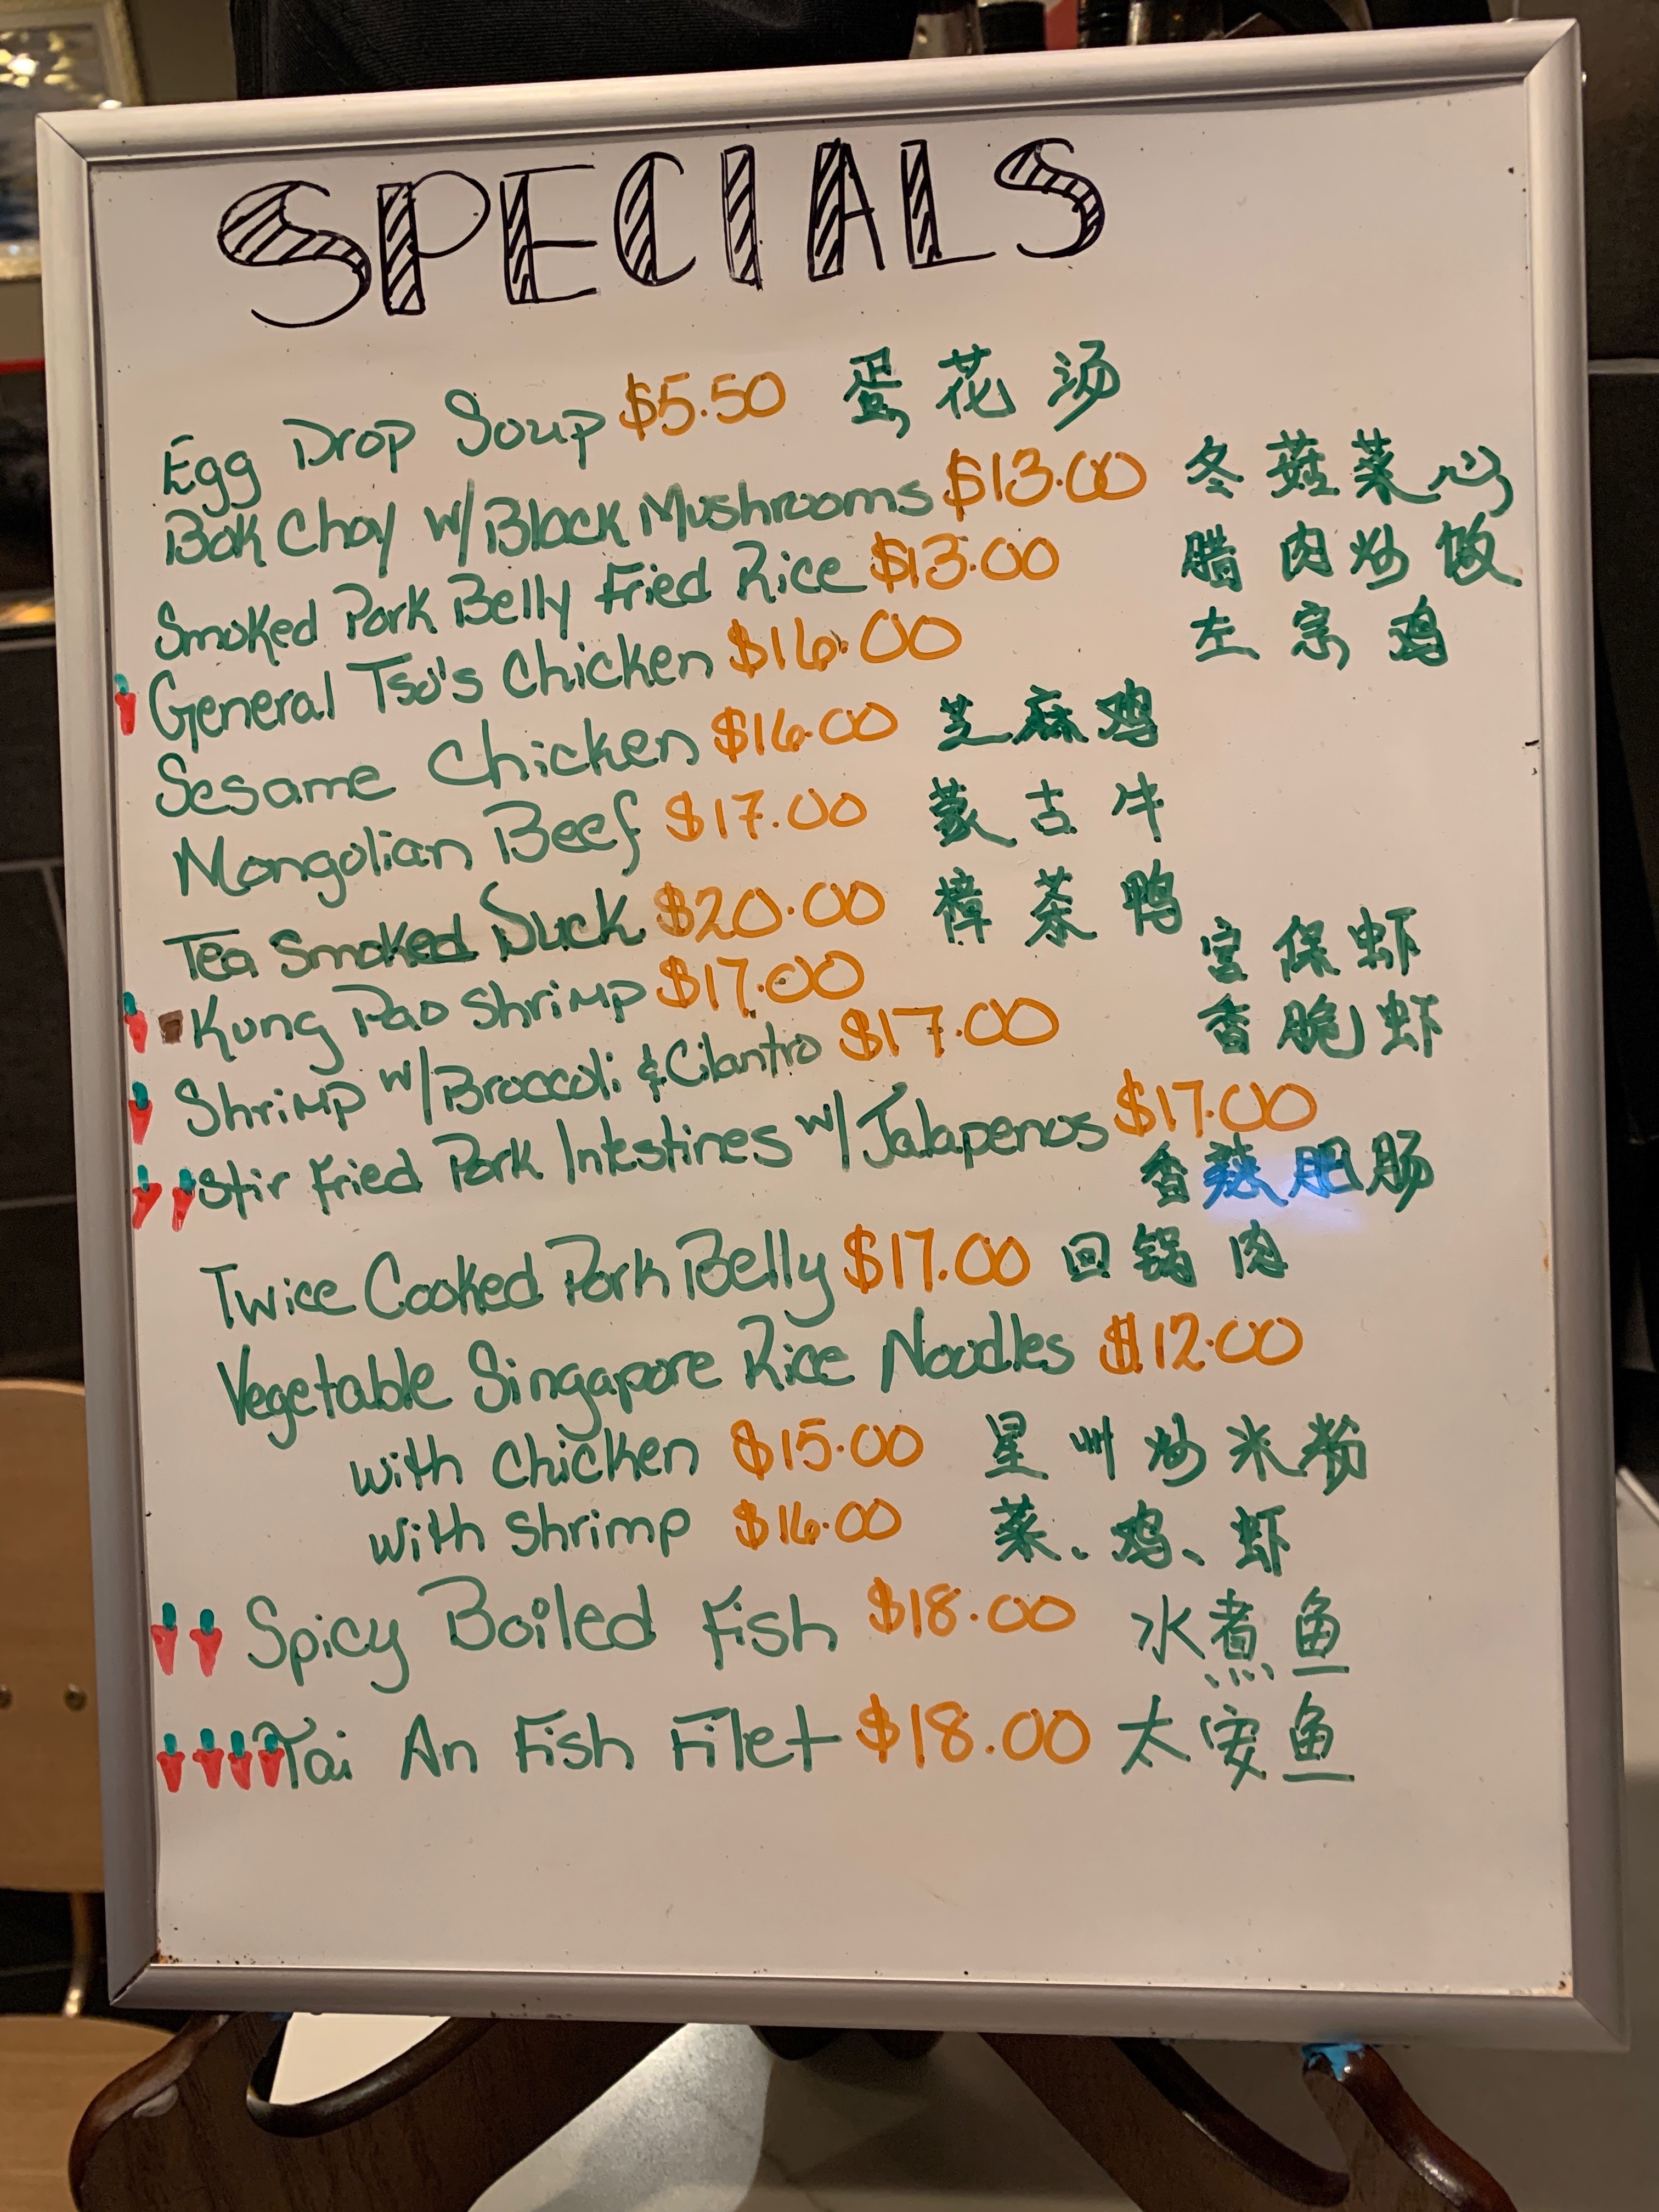 SPECIALS
Egg Drop Soup $5.50 蛋花汤
Bok Choy w/Black Mushrooms $13.00 冬菇菜心
Smoked Pork Belly Fried Rice $13.00 腊肉炒饭
General Tso's Chicken $16.00 左宗鸡
Sesame Chicken $16.00 芝麻鸡
Mongolian Beef $17.00 蒙古牛
Tea Smoked Duck $20.00 樟茶鸭
Kung Pao Shrimp $17.00 宫保虾
Shrimp w/Broccoli & Cilantro $17.00 香脆虾
Stir Fried Pork Intestines w/Jalapenos $17.00
香辣肥肠
Twice Cooked Pork Belly $17.00 回锅肉
Vegetable Singapore Rice Noodles $12.00
with chicken $15.00 星州炒米粉
with shrimp $16.00 菜、鸡、虾
Spicy Boiled Fish $18.00 水煮鱼
Tai An Fish Filet $18.00 太安鱼